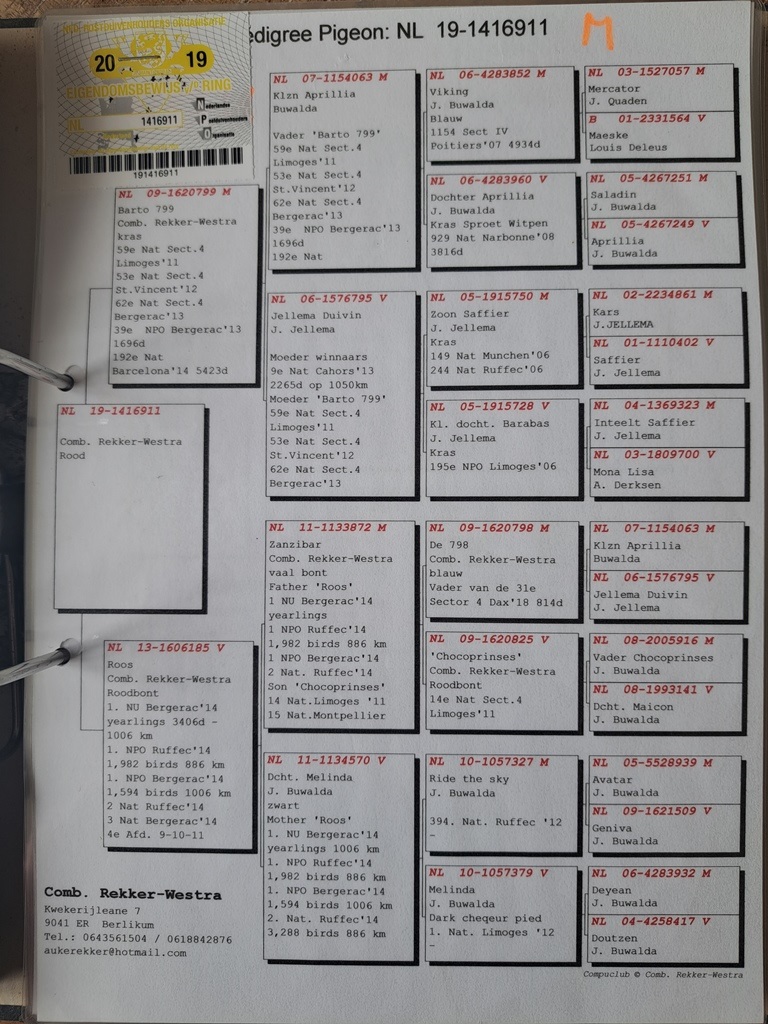 20 19
EIGENDOMSBEWIJS
NL 1416911
Nederlandse
Postduivenhouders
Organisatie
191416911
edigree Pigeon: NL 19-1416911
M
NL 19-1416911
Comb. Rekker-Westra
Rood
NL 09-1620799 M
Barto 799
Comb. Rekker-Westra
kras
59e Nat Sect.4
Limoges'11
53e Nat Sect.4
St.Vincent'12
62e Nat Sect.4
Bergerac'13
39e NPO Bergerac'13
1696d
192e Nat
Barcelona'14 5423d
NL 13-1606185 V
Roos
Comb. Rekker-Westra
Roodbont
1. NU Bergerac'14
yearlings 3406d -
1006 km
1. NPO Ruffec'14
1,982 birds 886 km
1. NPO Bergerac'14
1,594 birds 1006 km
2 Nat Ruffec'14
3 Nat Bergerac'14
4e Afd. 9-10-11
NL 07-1154063 M
Klzn Aprillia
Buwalda
Vader 'Barto 799'
59e Nat Sect.4
Limoges'11
53e Nat Sect.4
St.Vincent'12
62e Nat Sect.4
Bergerac'13
39e NPO Bergerac'13
1696d
192e Nat
NL 06-1576795 V
Jellema Duivin
J. Jellema
Moeder winnaars
9e Nat Cahors'13
2265d op 1050km
Moeder 'Barto 799'
59e Nat Sect.4
Limoges'11
53e Nat Sect.4
St.Vincent'12
62e Nat Sect.4
Bergerac'13
NL 11-1133872 M
Zanzibar
Comb. Rekker-Westra
vaal bont
Father 'Roos'
1 NU Bergerac'14
yearlings
1 NPO Ruffec'14
1,982 birds 886 km
1 NPO Bergerac'14
2 Nat. Ruffec'14
Son 'Chocoprinses'
14 Nat.Limoges '11
15 Nat.Montpellier
NL 11-1134570 V
Dcht. Melinda
J. Buwalda
zwart
Mother 'Roos'
1. NU Bergerac'14
yearlings 1006 km
1. NPO Ruffec'14
1,982 birds 886 km
1. NPO Bergerac'14
1,594 birds 1006 km
2. Nat. Ruffec'14
3,288 birds 886 km
NL 06-4283852 M
Viking
J. Buwalda
Blauw
1154 Sect IV
Poitiers'07 4934d
NL 06-4283960 V
Dochter Aprillia
J. Buwalda
Kras Sproet Witpen
929 Nat Narbonne'08
3816d
NL 05-1915750 M
Zoon Saffier
J. Jellema
Kras
149 Nat Munchen'06
244 Nat Ruffec'06
NL 05-1915728 V
Kl. docht. Barabas
J. Jellema
Kras
195e NPO Limoges'06
NL 09-1620798 M
De 798
Comb. Rekker-Westra
blauw
Vader van de 31e
Sector 4 Dax'18 814d
NL 09-1620825 V
'Chocoprinses'
Comb. Rekker-Westra
Roodbont
14e Nat Sect.4
Limoges'11
NL 10-1057327 M
Ride the sky
J. Buwalda
394. Nat. Ruffec '12
-
NL 10-1057379 V
Melinda
J. Buwalda
Dark cheqeur pied
1. Nat. Limoges '12
-
NL 03-1527057 M
Mercator
J. Quaden
B 01-2331564 V
Maeske
Louis Deleus
NL 05-4267251 M
Saladin
J. Buwalda
NL 05-4267249 V
Aprillia
J. Buwalda
NL 02-2234861 M
Kars
J.JELLEMA
NL 01-1110402 V
Saffier
J. Jellema
NL 04-1369323 M
Inteelt Saffier
J. Jellema
NL 03-1809700 V
Mona Lisa
A. Derksen
NL 07-1154063 M
Klzn Aprillia
Buwalda
NL 06-1576795 V
Jellema Duivin
J. Jellema
NL 08-2005916 M
Vader Chocoprinses
J. Buwalda
NL 08-1993141 V
Dcht. Maicon
J. Buwalda
NL 05-5528939 M
Avatar
J. Buwalda
NL 09-1621509 V
Geniva
J. Buwalda
NL 06-4283932 M
Deyean
J. Buwalda
NL 04-4258417 V
Doutzen
J. Buwalda
Comb. Rekker-Westra
Kwekerijleane 7
9041 ER Berlikum
Tel.: 0643561504 / 0618842876
aukerekker@hotmail.com
Compuclub © Comb. Rekker-Westra